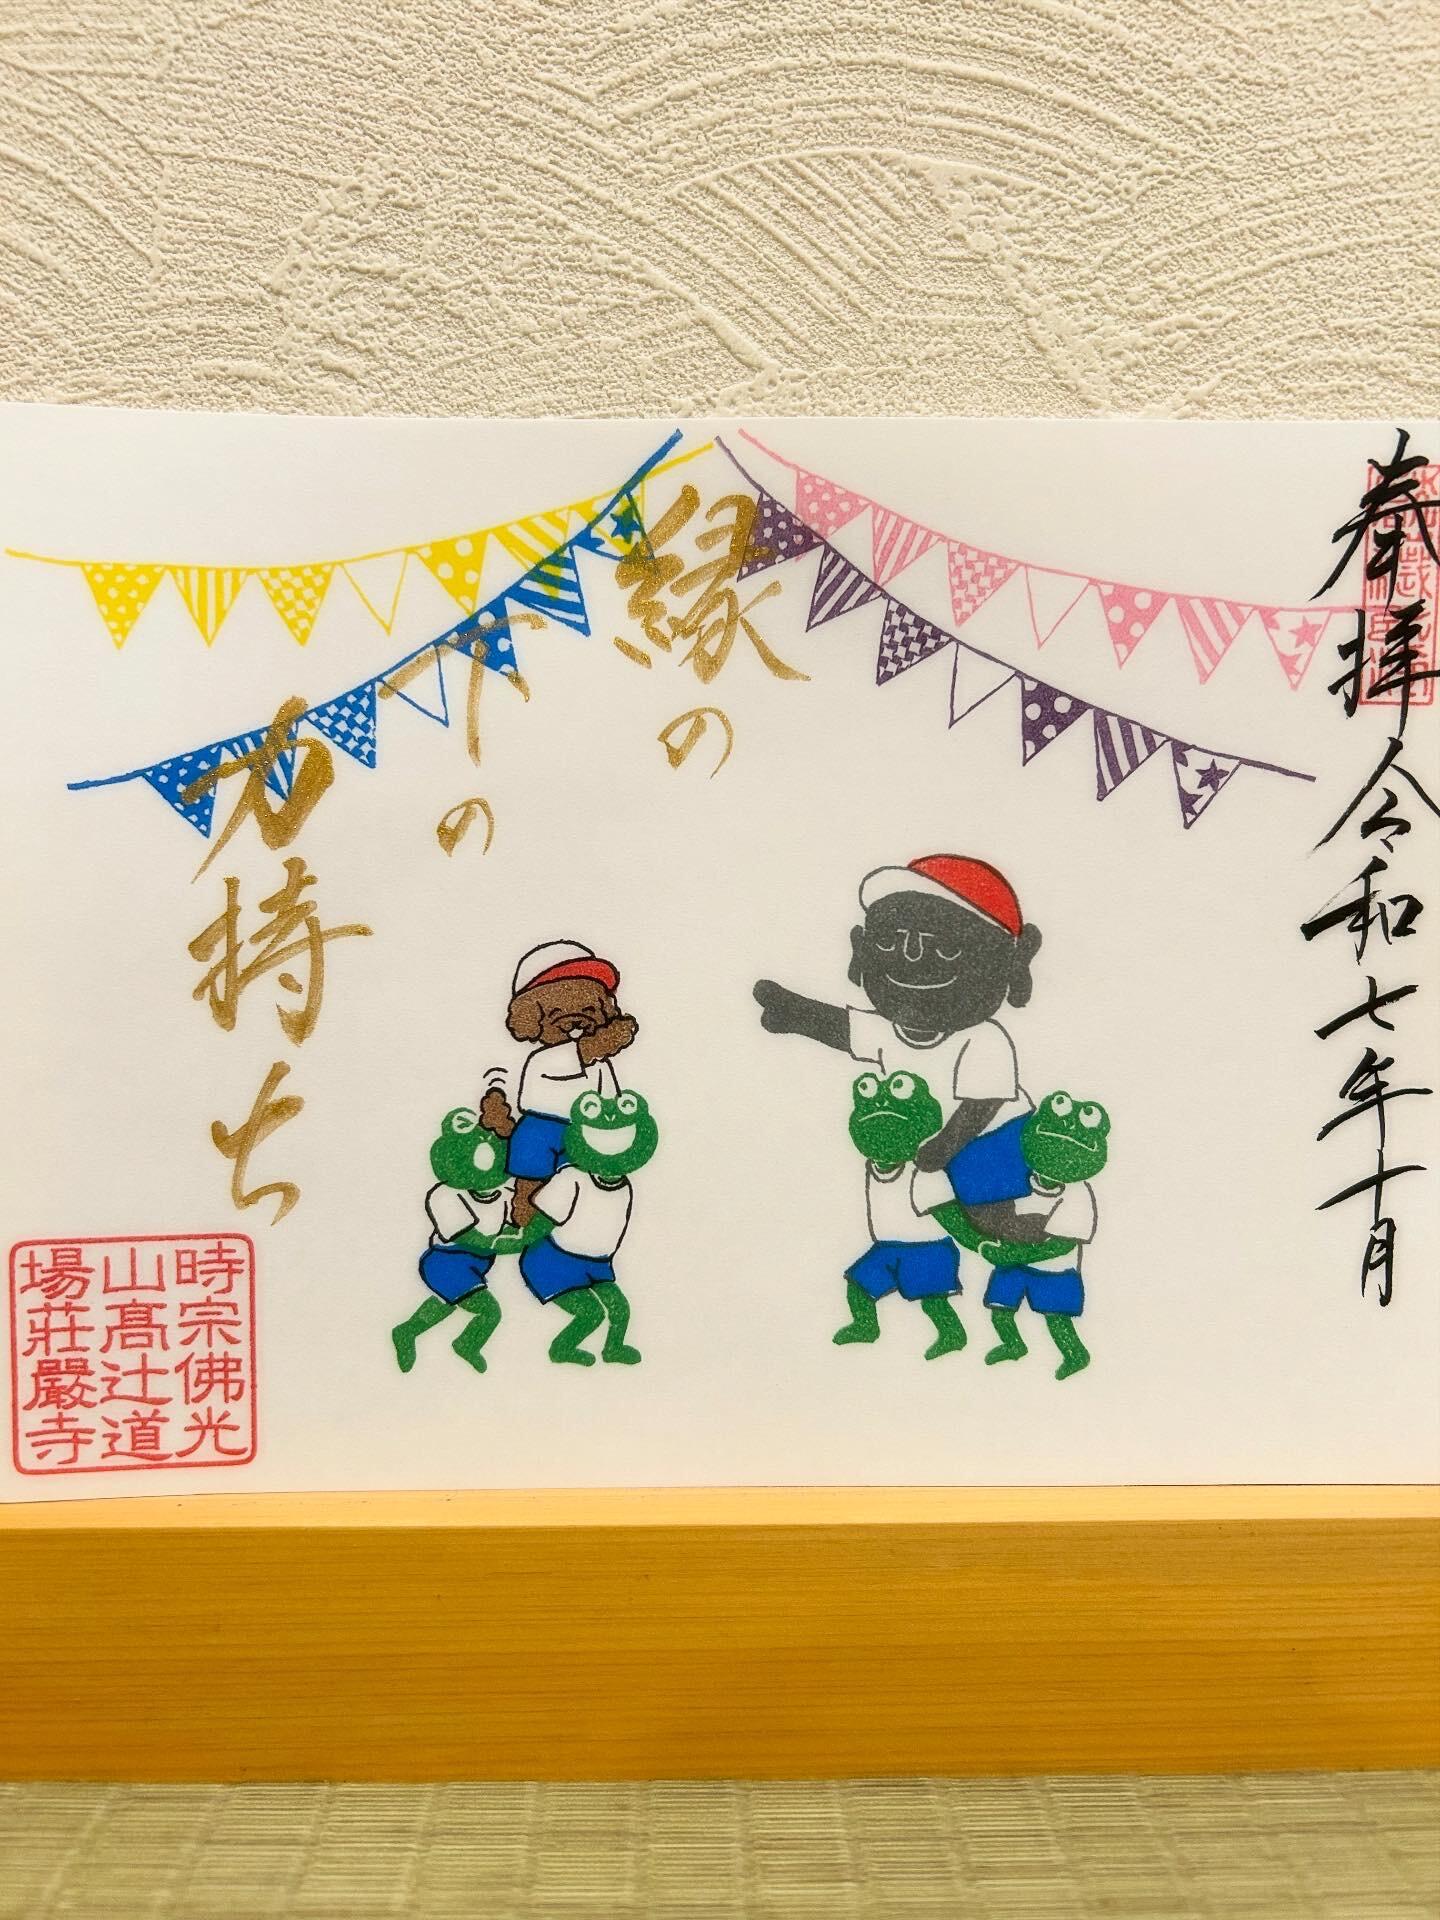 奉拝令和七年十月
縁の
下の
力持ち
時宗佛光
山髙辻道
場莊嚴寺